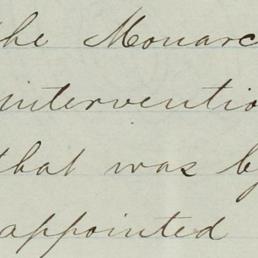 the Monarc
interventio
that was by
appointed